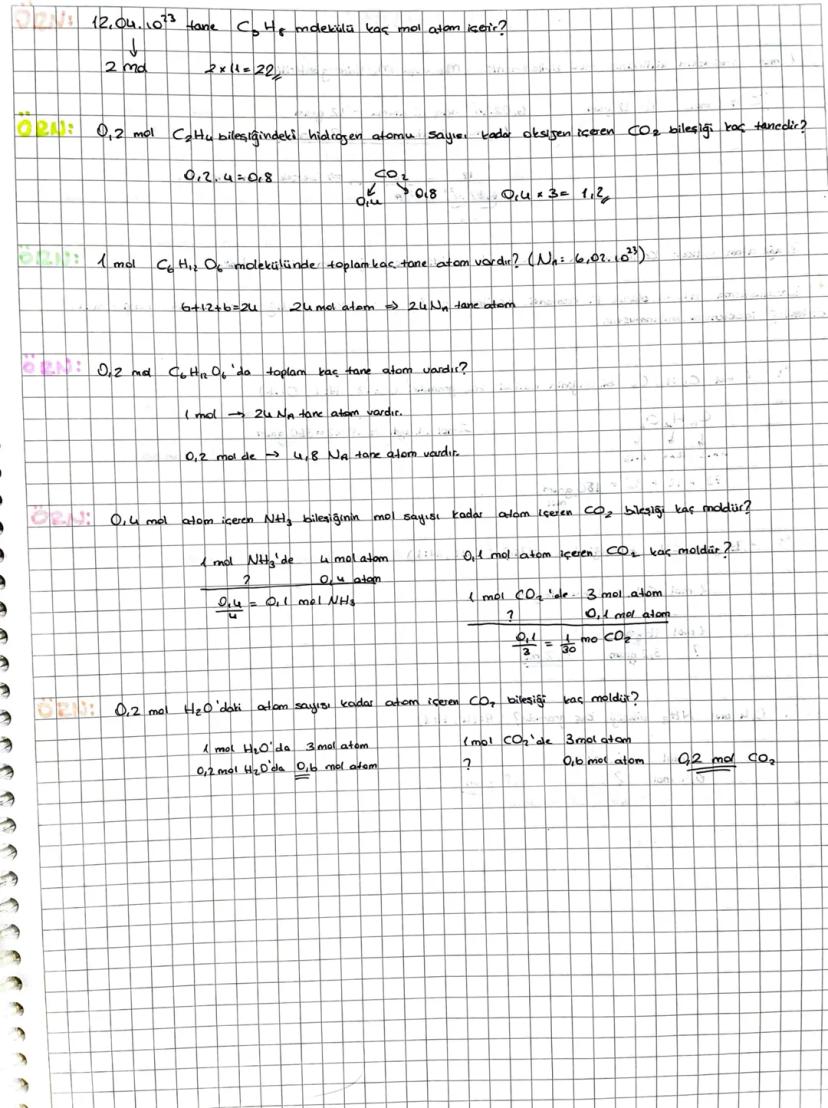 ÖRN: 12,04.10²³ tane C₃H₈ molekülü kaç mol atom içerir?
↓
2 mol 2 x 11 = 22
ÖRN: 0,2 mol C₂H₄ bileşiğindeki hidrojen atomu sayısı kadar oksijen içeren CO₂ bileşiği kaç tanedir?
0,2 . 4 = 0,8 CO₂
0,4 0,8 0,4 x 3 = 1,2
ÖRN: 1 mol C₆H₁₂O₆ molekülünde toplam kaç tane atom vardır? (Nₐ = 6,02.10²³)
6+12+6=24 24 mol atom ⇒ 24Nₐ tane atom
ÖRN: 0,2 mol C₆H₁₂O₆'da toplam kaç tane atom vardır?
1 mol → 24 NA tane atom vardır.
0,2 mol de → 4,8 NA tane atom vardır.
ÖRN: 0,4 mol atom içeren NH₃ bileşiğinin mol sayısı kadar atom içeren CO₂ bileşiği kaç moldür?
1 mol NH₃'de 4 mol atom 0,1 mol atom içeren CO₂ kaç moldür?
? 0,4 atom 1 mol CO₂'de 3 mol atom
0,4/4 = 0,1 mol NH₃ ? 0,1 mol atom
0,1/3 = 1/30 mo CO₂
ÖRN: 0,2 mol H₂O'daki atom sayısı kadar atom içeren CO₂ bileşiği kaç moldür?
1 mol H₂O'da 3 mol atom 1 mol CO₂'de 3 mol atom
0,2 mol H₂O'da 0,6 mol atom ? 0,6 mol atom 0,2 mol CO₂